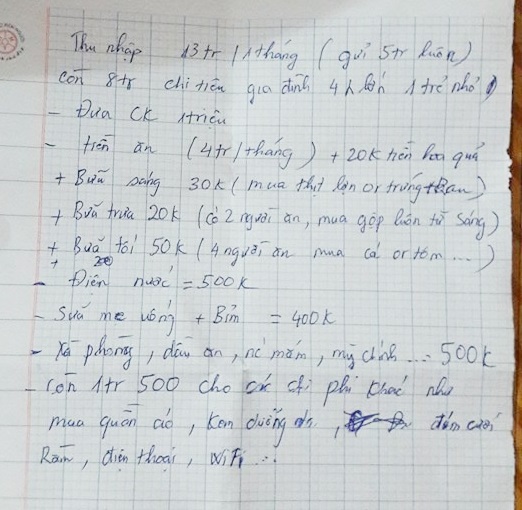 Thu nhập 13tr / 1tháng ( gửi 5tr luôn)
còn 8tr chi tiêu gia đình 4 lớn 1 trẻ nhỏ
- Đưa CK 1triệu
- tiền ăn (4tr/tháng) + 20K tiền hoa quả
+ Bữa sáng 30K ( mua thịt lợn or trứng + Rau)
+ Bữa trưa 20K (có 2 người ăn, mua gộp luôn từ sáng)
+ Bữa tối 50K ( 4 người ăn mua cá or tôm ... )
- Điện nước = 500K
- Sữa mẹ uống + Bỉm = 400K
- Xà phòng, dầu ăn, nc mắm, mỳ chính ... 500K
- Còn 1tr 500 cho các chi phí khác như
mua quần áo, kem dưỡng da, đám cưới
Rằm, điện thoại, WiFi ...